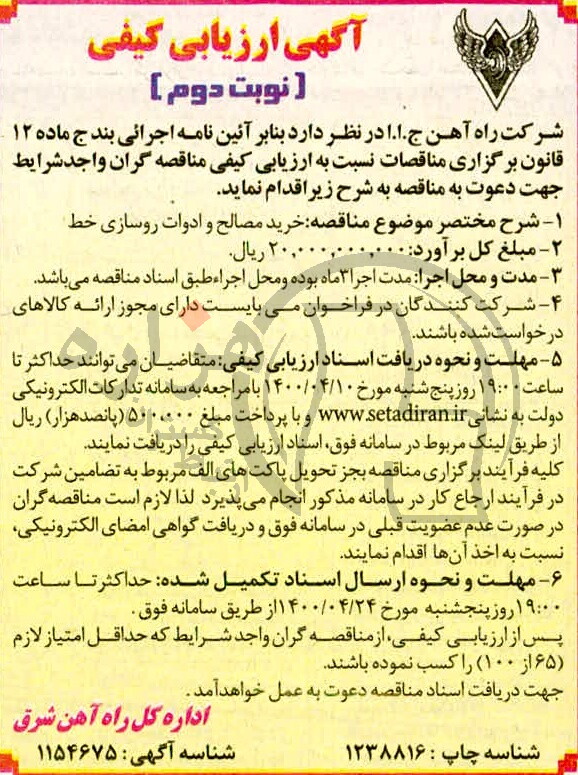 آگهی ارزیابی کیفی
[ نوبت دوم ]
شرکت راه آهن ج.ا.ا در نظر دارد بنابر آئین نامه اجرائی بند ج ماده ۱۲
قانون برگزاری مناقصات نسبت به ارزیابی کیفی مناقصه گران واجدشرایط
جهت دعوت به مناقصه به شرح زیر اقدام نماید.
۱- شرح مختصر موضوع مناقصه:خرید مصالح و ادوات روسازی خط
۲- مبلغ کل برآورد:۲۰,۰۰۰,۰۰۰,۰۰۰ ریال.
۳- مدت و محل اجرا: مدت اجرا۳ماه بوده ومحل اجراءطبق اسناد مناقصه می‌باشد.
۴- شرکت کنندگان در فراخوان می بایست دارای مجوز ارائه کالاهای
درخواست‌شده باشند.
۵- مهلت و نحوه دریافت اسناد ارزیابی کیفی: متقاضیان می‌توانند حداکثر تا
ساعت ۱۹:۰۰ روز پنج‌شنبه مورخ ۱۴۰۰/۰۴/۱۰ با مراجعه به سامانه تدارکات الکترونیکی
دولت به نشانی www.setadiran.ir و با پرداخت مبلغ ۵۰۰,۰۰۰ (پانصدهزار) ریال
از طریق لینک مربوط در سامانه فوق، اسناد ارزیابی کیفی را دریافت نمایند.
کلیه فرآیند برگزاری مناقصه بجز تحویل پاکت های الف مربوط به تضامین شرکت
در فرآیند ارجاع کار در سامانه مذکور انجام می‌پذیرد لذا لازم است مناقصه گران
در صورت عدم عضویت قبلی در سامانه فوق و دریافت گواهی امضای الکترونیکی،
نسبت به اخذ آن‌ها اقدام نمایند.
۶- مهلت و نحوه ارسال اسناد تکمیل شده: حداکثر تا ساعت
۱۹:۰۰ روز پنجشنبه مورخ ۱۴۰۰/۰۴/۲۴ از طریق سامانه فوق .
پس از ارزیابی کیفی، از مناقصه گران واجد شرایط که حداقل امتیاز لازم
(۶۵ از ۱۰۰) را کسب نموده باشند.
جهت دریافت اسناد مناقصه دعوت به عمل خواهدآمد .
اداره کل راه آهن شرق
شناسه چاپ : ۱۲۳۸۸۱۶ شناسه آگهی: ۱۱۵۴۶۷۵